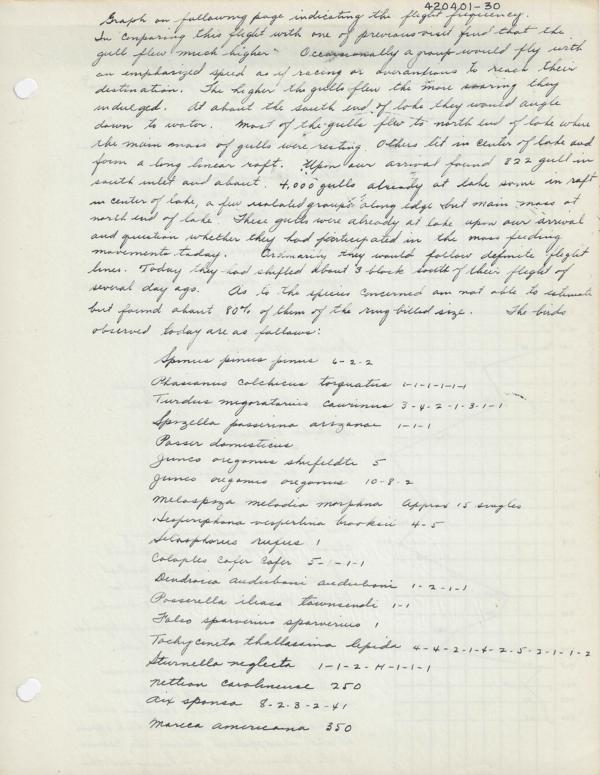 420401-30
Graph on following page indicating the flight frequency.
In comparing this flight with one of previous visit find that the
gull flew much higher. Occasionally a group would fly with
an emphasized speed as if racing or overanxious to reach their
destination. The higher the gulls flew the more soaring they
indulged. At about the south end of lake they would angle
down to water. Most of the gulls flew to north end of lake where
the main mass of gulls were resting. Others lit in center of lake and
form a long linear raft. Upon our arrival found 822 gull in
south inlet and about 4,000 gulls already at lake some in raft
in center of lake, a few isolated groups along edge but main mass at
north end of lake. These gulls were already at lake upon our arrival
and question whether they had participated in the mass feeding
movements today. Ordinarily they would follow definite flight
lines. Today they had shifted about 3 block south of their flight of
several day ago. As to the species concerned am not able to estimate
but found about 80% of them of the ring-billed size. The birds
observed today are as follows:
Spinus pinus pinus 6-2-2
Phasianus colchicus torquatus 1-1-1-1-1-1
Turdus migoratorius caurinus 3-4-2-1-3-1-1
Spizella passerina arizonae 1-1-1
Passer domisticus
Junco oreganus shufeldti 5
Junco oreganus oreganus 10-8-2
Melospiza melodia morphna Approx 15 singles
Hesperiphona vespertina brooksi 4-5
Selasphorus rufus 1
Colaptes cafer cafer 5-1-1-1
Dendroica auduboni auduboni 1-2-1-1
Passerella iliaca townsendi 1-1
Falco sparverius sparverius 1
Tachycineta thallassina lepida 4-4-2-1-4-2-5-2-1-1-2
Sturnella neglecta 1-1-2-4-1-1-1
Nettion carolinense 250
Aix sponsa 8-2-3-2-41
Mareca americana 350